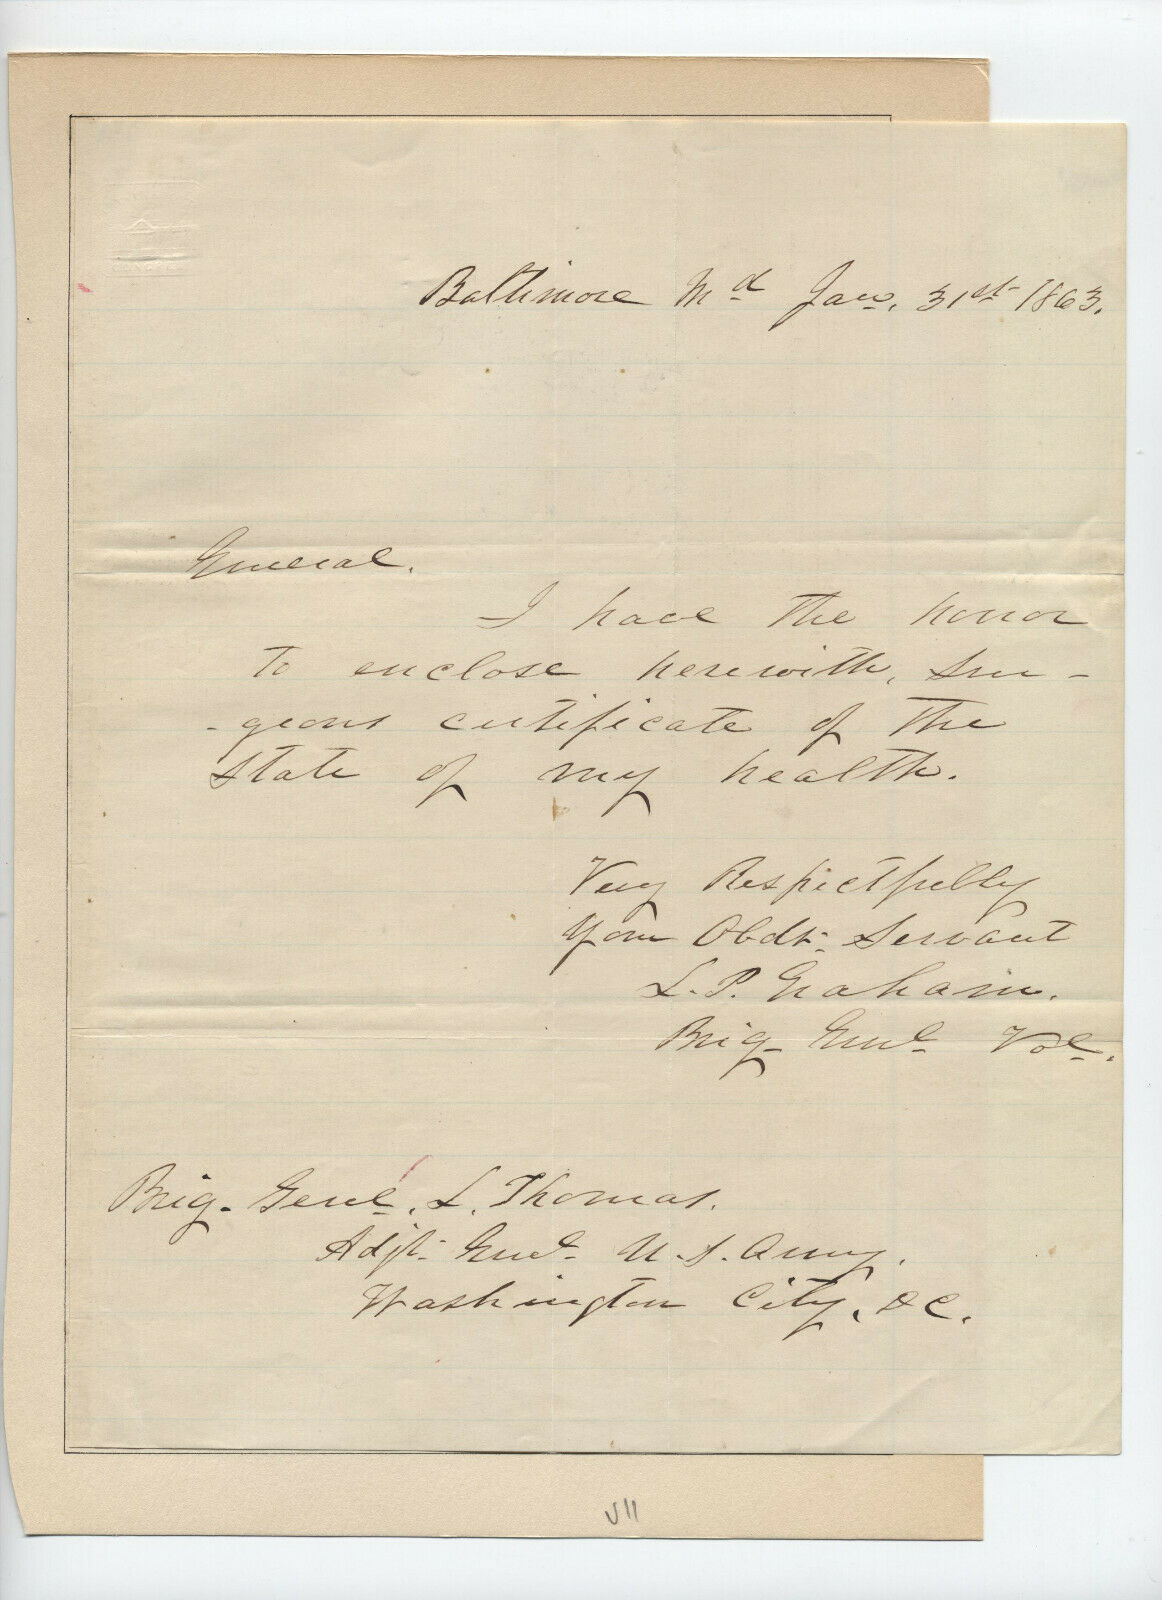 Baltimore Md Jan. 31st 1863.
General.
I have the honor
to enclose herewith, Sur-
-geons certificate of the
state of my health.
Very Respectfully
Your Obdt. Servant
L. P. Graham.
Brig. Genl. Vol.
Brig. Genl. L. Thomas.
Adjt. Genl. U.S. Army.
Washington City, D C.